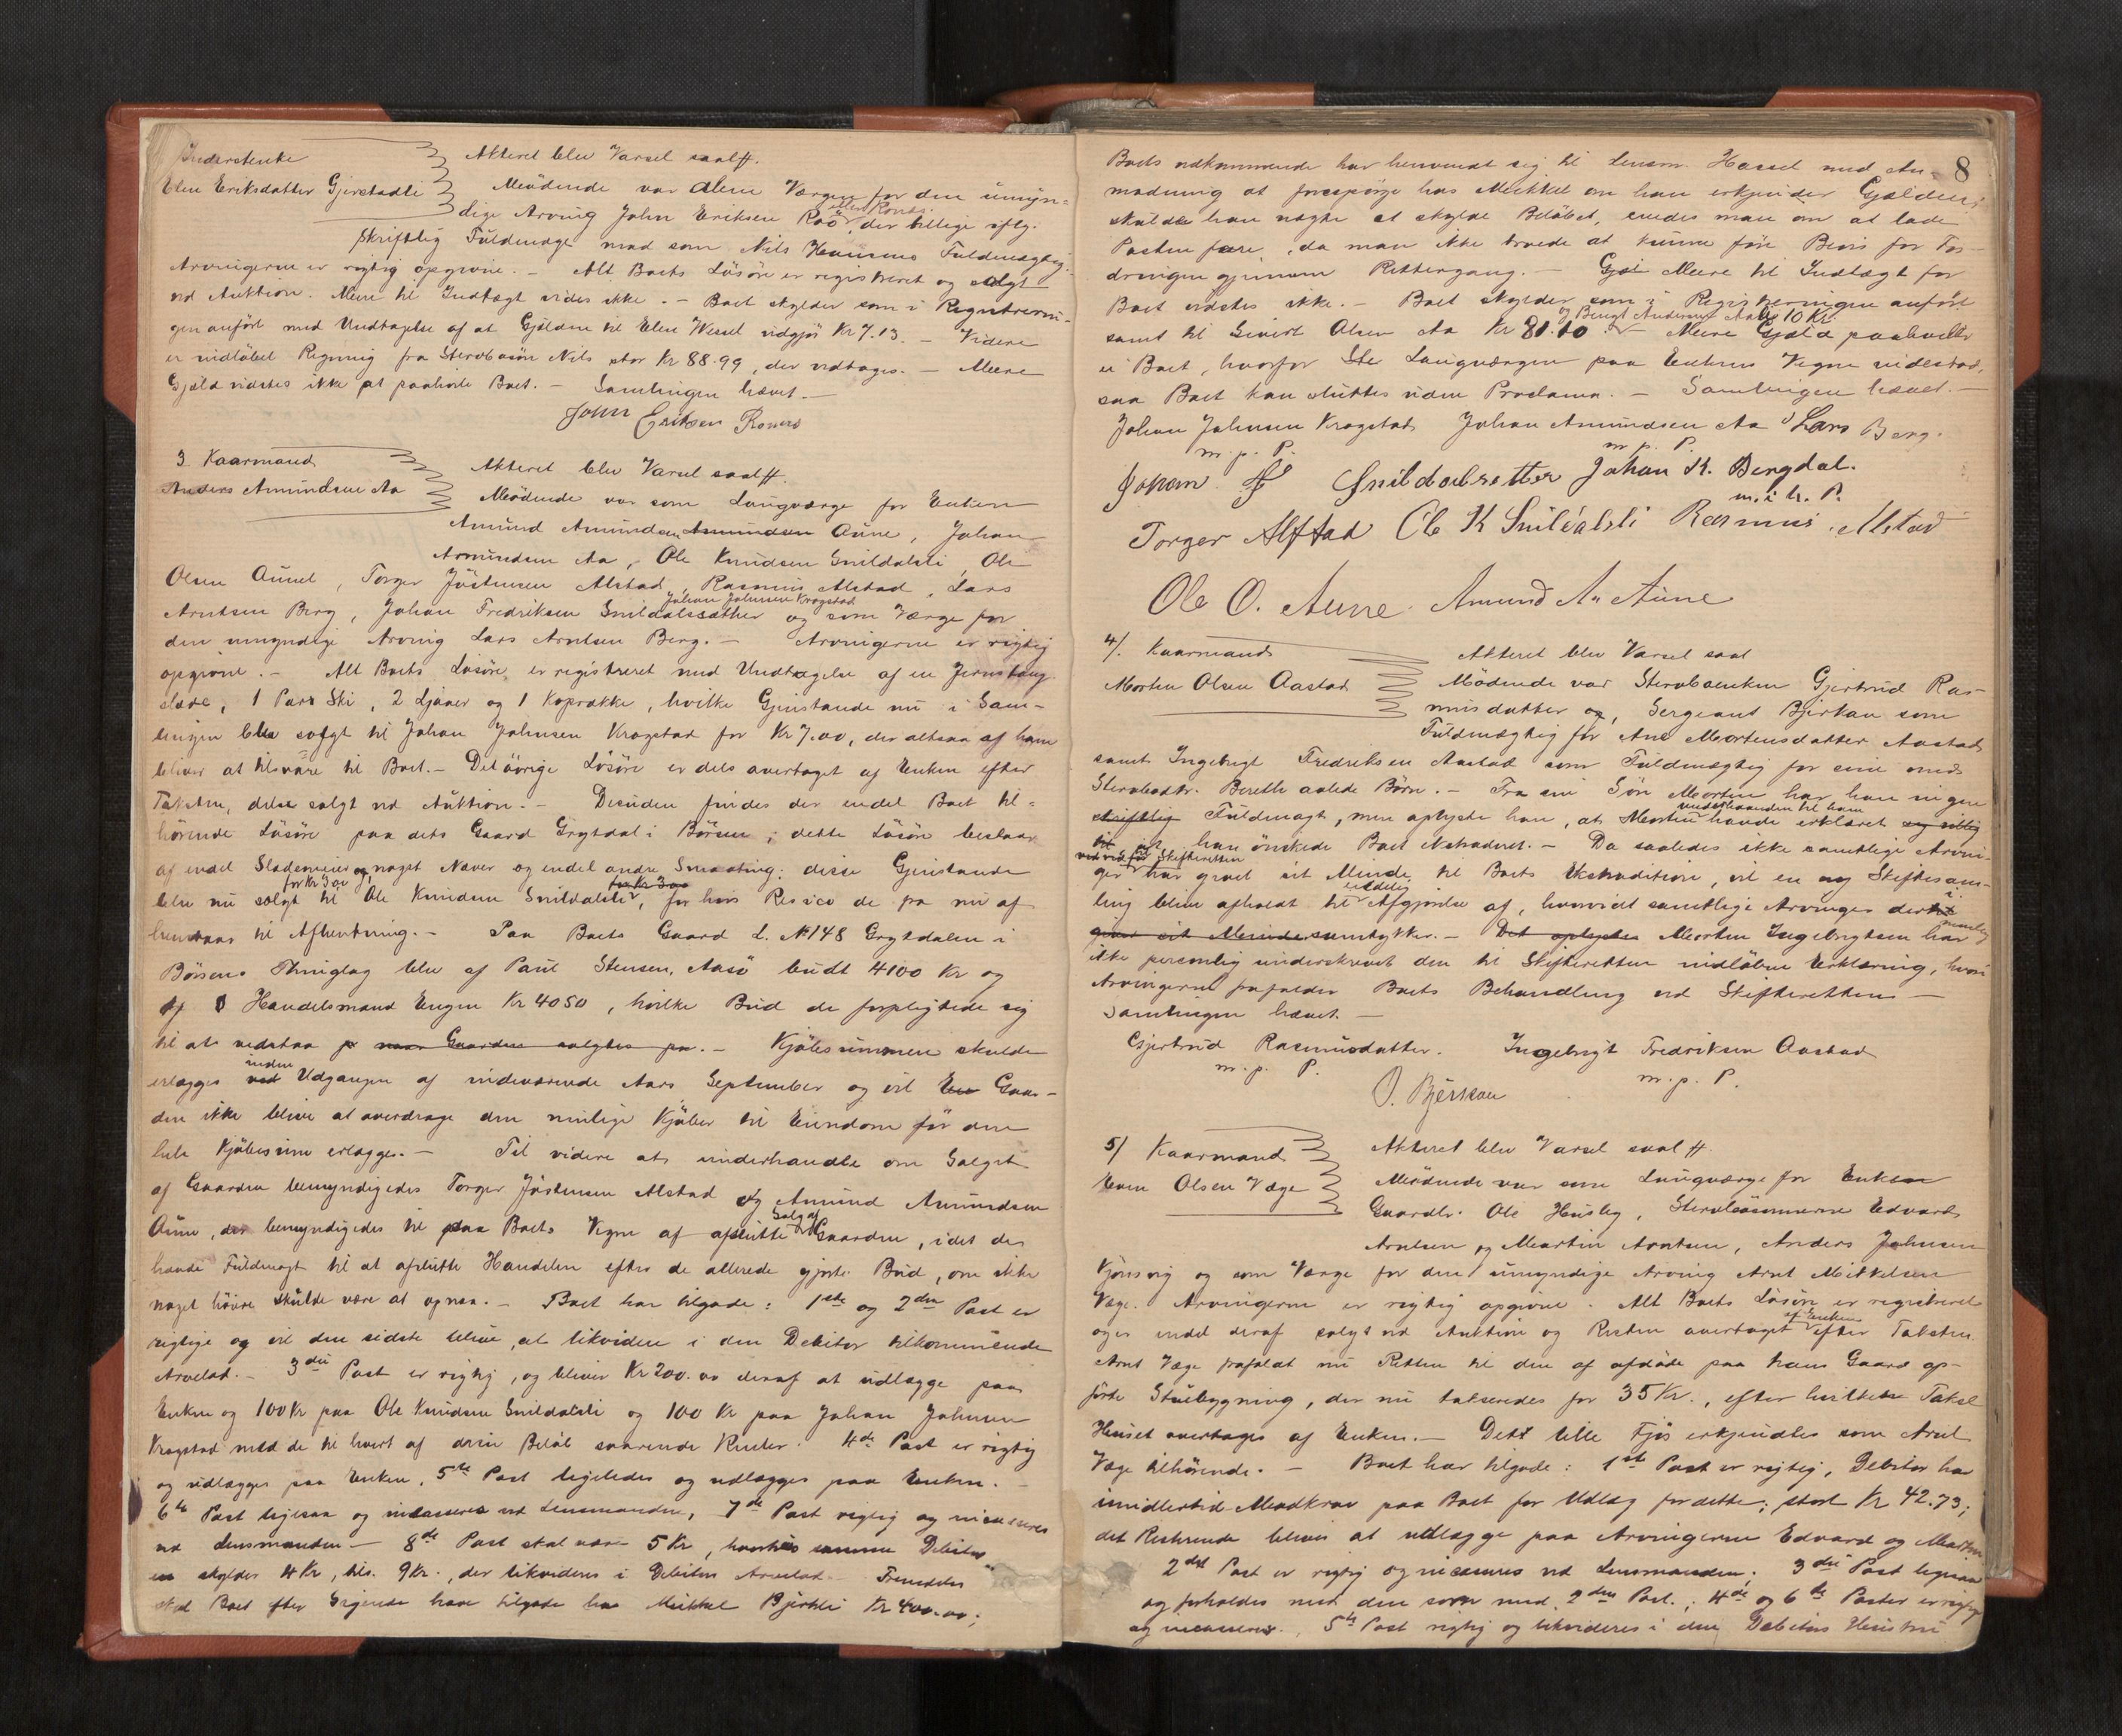 Inderstenke
Elen Eriksdatter Gjerstadli
Akteret blev Varsel saalt.
Mödende var alene Værgen for den umyn-
dige Arving John Eriksen Roö eller Rones, der tillige iflg.
skriftlig Fuldmagt mød som Nils Hansens Fuldmægtig.
Arvingerne er rigtig opgivne. - Alt Boets Lösöre er registreret og solgt
ved Auktion. Mere til Indtægt vides ikke. - Boet skylder som i Registrerin-
gen anfört med Undtagelse af at Gjælden til Elen Wessel udgjör Kr 7.13. - Videre
er indlöbet Regning fra Stervbosön Nils stor Kr 88.99, der vedtages. - Mere
Gjæld vidstes ikke at paahvile Boet. - Samlingen hævet. -
John Eriksen Rones
3 Kaarmand
Anders Amundsen Aa
Akteret blev Varsel saalt.
Mödende var som Laugværge for Enken
Amund Amundsen Amundsen Aune, Johan
Amundsen Aa, Ole Knudsen Snildalsli, Ole
Olsen Aunet, Torger Jöstensen Alstad, Rasmus Alstad, Lars
Arntsen Berg, Johan Fredriksen Snildalssæther Johan Johnsen Krogstad og som Værge for
den umyndige Arving Lars Arntsen Berg. - Arvingerne er rigtig
opgivne. - Alt Boets Lösöre er registreret med Undtagelse af en Jernstang
slæde, 1 Pars Ski, 2 Ljaaer og 1 Koprække, hvilke Gjenstande nu i Sam-
lingen blev solgt til Johan Johnsen Krogstad for Kr 7.00, der altsaa af ham
bliver at tilsvare til Boet. - Det övrige Lösöre er dels overtaget af Enken efter
Taksten, dels solgt ved Auktion. - Desuden findes der endel Boet til-
hörende Lösöre paa dets Gaard Grytdal i Börsen; dette Lösöre bestaar
af endel Slademeier og noget Næver og endel andre Smaating; disse Gjenstande
blev nu solgt for Kr 3.00 til Ole Knudsen Snildalsli for Kr 3.00, for hvis Resico de fra nu af
henstaar til Afhentning. - Paa Boets Gaard L. N 148 Grytdalen i
Börsens Thinglag blev af Paul Stensen, Aasö budt 4100 Kr og
af Handelsmand Engen Kr 4050, hvilke Bud de forpligtede sig
til at vedstaa naar Gaarden solgtes. - Kjöbesummen skulde
erlægges ved inden Udgangen af indeværende Aars September og vil Gaar-
den ikke blive at overdrage den mulige Kjöber til Eiendom för den
hele Kjöbesum erlægges. - Til videre at underhandle om Salget
af Gaarden bemyndigedes Torger Jöstensen Alstad og Amund Amundsen
Aune, der bemyndigedes til paa Boets Vegne at afslutte Salg af Gaarden, idet de
havde Fuldmagt til at afslutte Handelen efter de allerede gjorte Bud, om ikke
noget höiere skulde være at opnaa. - Boet har tilgode: 1ste og 2den Post er
rigtige og vil den sidste blive at likvidere i den Debitor tilkommende
Arvelod. - 3die Post er rigtig, og bliver Kr 200.00 deraf at udlægge paa
Enken og 100 Kr paa Ole Knudsen Snildalsli og 100 Kr paa Johan Johnsen
Krogstad med de til hvert af disse Belöb svarende Renter. 4de Post er rigtig
og udlægges paa Enken. 5te Post ligeledes og udlægges paa Enken. -
6te Post ligesaa og incasseres ved Lensmanden, 7de Post rigtig og incasseres
ved Lensmanden - 8de Post skal være 5 Kr, hvorhos samme Debitor
skylder 4 Kr, tils. 9 Kr., der likvideres i Debitors Arvelod. - Fremdeles
skal Boet efter Sigende have tilgode hos Mikkel Bjerkli Kr 400.00;
8
Boets vedkommende har henvendt sig til Lensm. Hassel med An-
modning at forespörge hos Mikkel om han erkjender Gjælden;
skulde han nægte at skylde Belöbet, enedes man om at lade
Posten fare, da man ikke troede at kunne före Bevis for For-
dringen gjennem Rettergang. - Mere til Indtægt for
Boet vidstes ikke. - Boet skylder som i Registreringen anfört
samt til Sivert Olsen Aa Kr 81.10 og Bengt Andersen Aa 10 Kr. - Mere Gjæld paahvilte
ei Boet, hvorfor Laugværgen paa Enkens Vegne vedestod,
saa Boet kan sluttes uden Proclama. - Samlingen hævet. -
Johan Johnsen Krogstad Johan Amundsen Aa Lars Berg.
m. p. P. m. p. P.
Johan F Snildalssetter Johan K. Bergdal.
m. i h. P.
Torger Alstad Ole K Snildalsli Rasmus Alstad
Ole O. Aune. Amund A. Aune
4/. Kaarmand
Morten Olsen Aastad
Akteret blev Varsel saal
Mödende var Stervboenken Gjertrud Ras-
musdatter og, Sergeant Bjerkan som
Fuldmægtig for Ane Mortensdatter Aastad
samt Ingebrigt Fredriksen Aastad som Fuldmægtig for sine med
Stervbodtr. Berethe avlede Börn. - Fra sin Sön Morten har han ingen
skriftlig Fuldmagt, men oplyste han, at Morten underhaanden til ham havde erklæret sig villig
til at han önskede Boet extraderet. - Da saaledes ikke samtlige Arvin-
ger ved for Skifteretten har givet sit Minde til Boets Extradition, vil en ny Skiftesam-
ling blive afholdt til endelig Afgjörelse af, hvorvidt samtlige Arvinger dertil i
giver sit Minde samtykker. - Det oplystes Morten Ingebrigtsen har nemlig
ikke personlig underskrevet den til Skifteretten indlöbne Erklæring, hvori
Arvingerne frafalder Boets Behandling ved Skifteretten -
Samlingen hævet. -
Gjertrud Rasmusdatter. Ingebrigt Fredriksen Aastad
m. p. P. m. p. P.
O. Bjerkan
5/ Kaarmand
Even Olsen Væge
Akteret blev Varsel saalt.
Mödende var som Laugværge for Enken
Gaardbr. Ole Husby, Stervbosönnerne Edvard
Arntsen og Martin Arntsen, Anders Johnsen
Kjönsvig og som Værge for den umyndige Arving Arnt Mikkelsen
Væge. Arvingerne er rigtig opgivne. Alt Boets Lösöre er registreret
og er endel deraf solgt ved Auktion og Resten overtaget af Enken efter Taksten.
Arnt Væge frafaldt nu Retten til den af afdöde paa hans Gaard op-
förte Stuebygning, der nu takseredes for 35 Kr., efter hvilken Takst
Huset overtages af Enken. - Det lille Fjös erkjendtes som Arnt
Væge tilhörende. - Boet har tilgode: 1ste Post er rigtig, Debitor har
imidlertid Modkrav paa Boet for Udlæg for dette; stort Kr 42.73;
det Resterende bliver at udlægge paa Arvingerne Edvard og Martin
2det Post er rigtig og incasseres ved Lensmanden; 3die Post ligesaa
og forholdes med den som med 2den Post.; 4de og 6te Poster er rigtige
og incasseres., 5te Post rigtig og likvideres i den Debitors Hustru